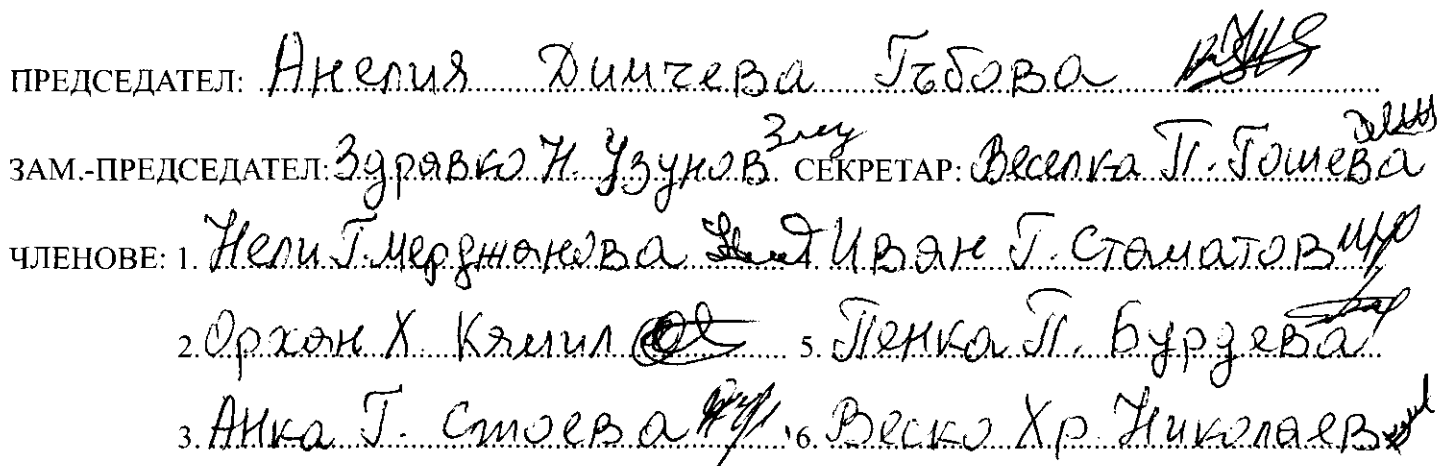 ПРЕДСЕДАТЕЛ: Анелия Димчева Гъбова
ЗАМ.-ПРЕДСЕДАТЕЛ: Здравко Н. Узунов СЕКРЕТАР: Веселка П. Гошева
ЧЛЕНОВЕ: 1. Нели Г. Мерджанова 4. Иван Г. Стаматов
2. Орхан Х. Кямил 5. Пенка П. Бурдева
3. Анка Г. Стоева 6. Веско Хр. Николаев